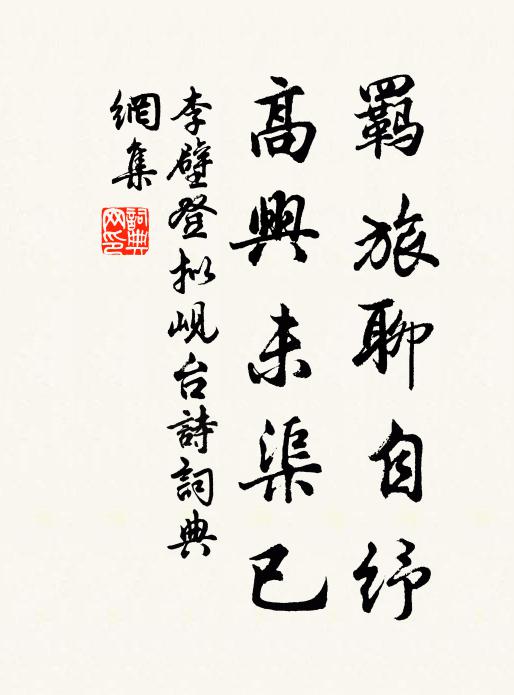 羈旅聊自紓
高興未渠已
李壁登拟峴台詩詞典
網集
詞典网印